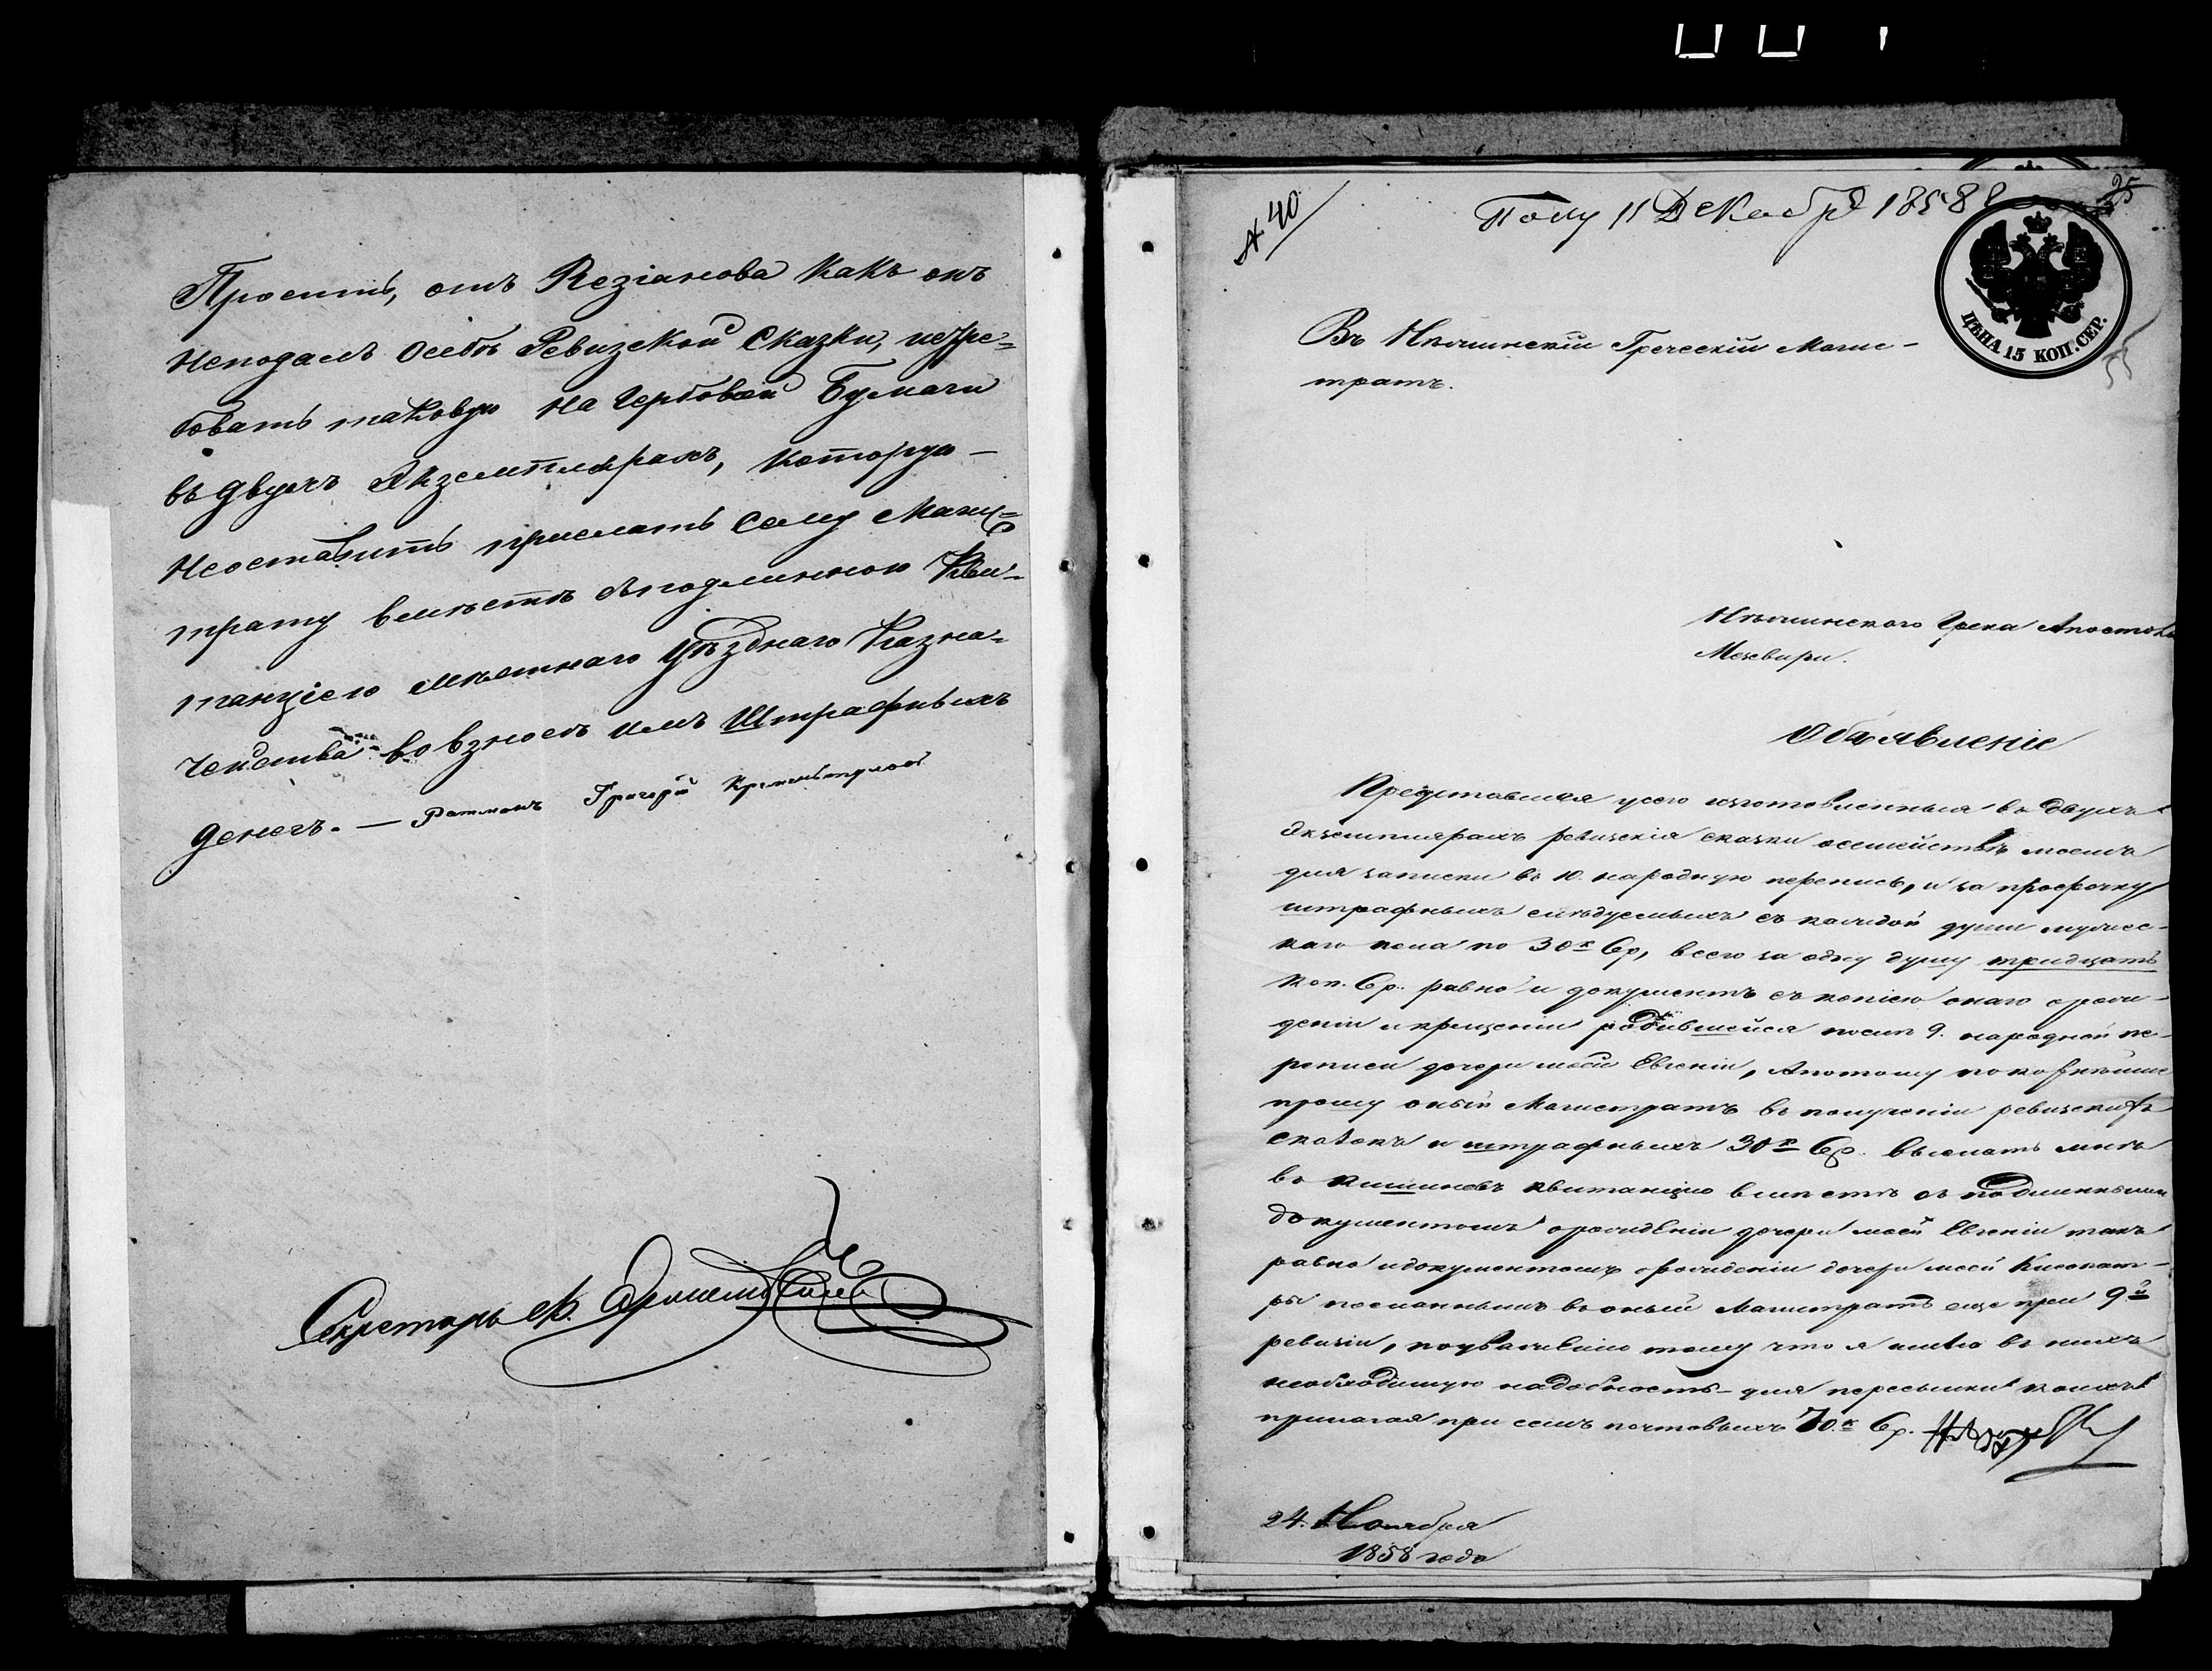 Проситъ, отъ Кезіанова какъ онъ
Неподалъ осебѣ Ревизской Сказки, истре=
бовать таковую На Гербовой Бумаги
въ двухъ Экземплярахъ, которую —
Неоставить прислать сему Маги=
трату вмѣстѣ съподлинною Кви=
танціею мѣстнаго Уѣзднаго Казна=
чейства во взносѣ имъ Штрафныхъ
денегъ. — Ратманъ Григорій
Секретарь
№ 40
Полу 11 Декабря 1858 г
25
ЦѢНА 15 КОП. СЕР.
Въ Нѣжинскій Греческій Магис-
тратъ.
Нѣжинскаго Грека Апостола
Мецевири.
Объявленіе
Представляя усего изготовленныя въ двухъ
экземплярахъ ревизскія сказки осемействѣ моемъ
для записки въ 10. народную перепись, и за просрочку
штрафныхъ слѣдуемыхъ съ каждой души мужес-
каго пола по 30 к Ср, всего за одну душу тридцать
коп. Ср. равно и документъ съ копіею онаго орож-
деніи и крещеніи родившейся послѣ 9. народной пе-
реписи дочери моей Евгеніи, Апотому покорнѣйше
прошу оный Магистратъ въ полученіи ревизскихъ
сказокъ и штрафныхъ 30 к Ср. выслать мнѣ
въ Кишиневъ квитанцію вмѣстѣ съ подлиннымъ
документомъ орожденіи дочери моей Евгеніи такъ
равно идокументомъ орожденіи дочери моей Клеопат-
ры посланнымъ въ оный Магистратъ еще при 9.й
ревизіи, поуваженію тому что я имѣю въ нихъ
необходимую надобность — для пересылки коихъ
прилагая при семъ почтовыхъ 70. к Ср.
24. Ноября
1858 года